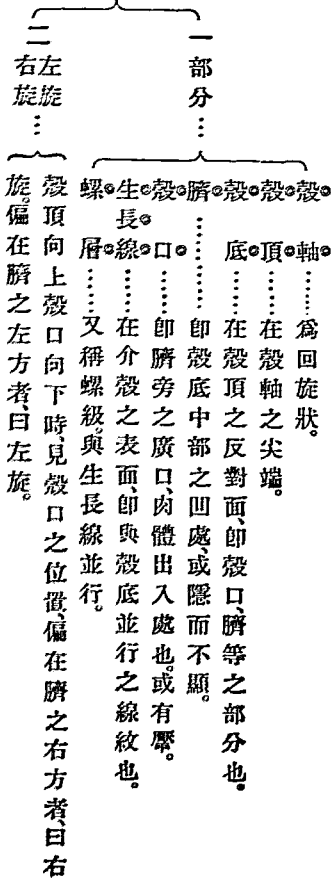 一部分…
殼軸……爲回旋狀。
殼頂……在殼軸之尖端。
殼底……在殼頂之反對面、卽殼口、臍等之部分也。
臍………卽殼底中部之凹處、或隱而不顯。
殼口……卽臍旁之廣口、肉體出入處也。或有厴。
生長線……在介殼之表面、卽與殼底並行之線紋也。
螺層……又稱螺級。與生長線並行。
二左旋右旋…
殼頂向上殼口向下時、見殼口之位置、偏在臍之右方者、曰右
旋。偏在臍之左方者、曰左旋。